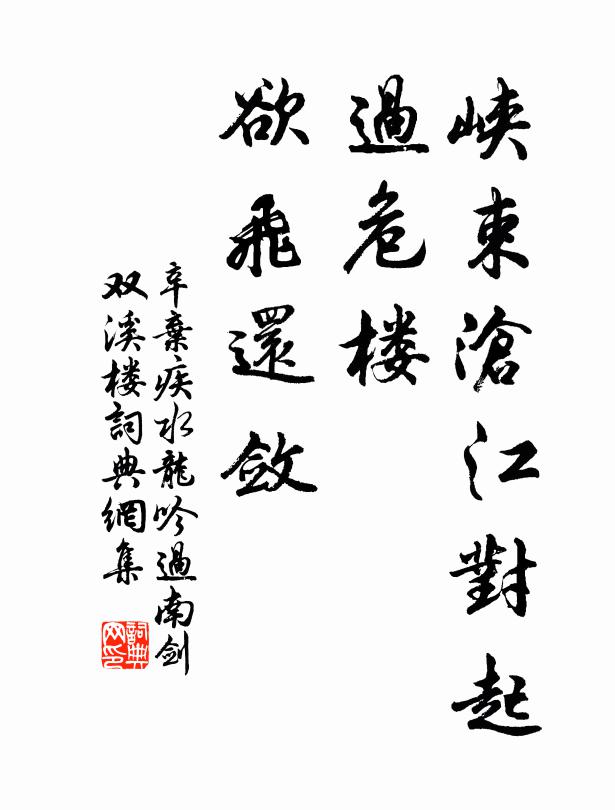 峡束滄江對起
過危楼
欲飛還斂
辛棄疾水龍吟過南剑
双溪楼詞典網集
詞典网印